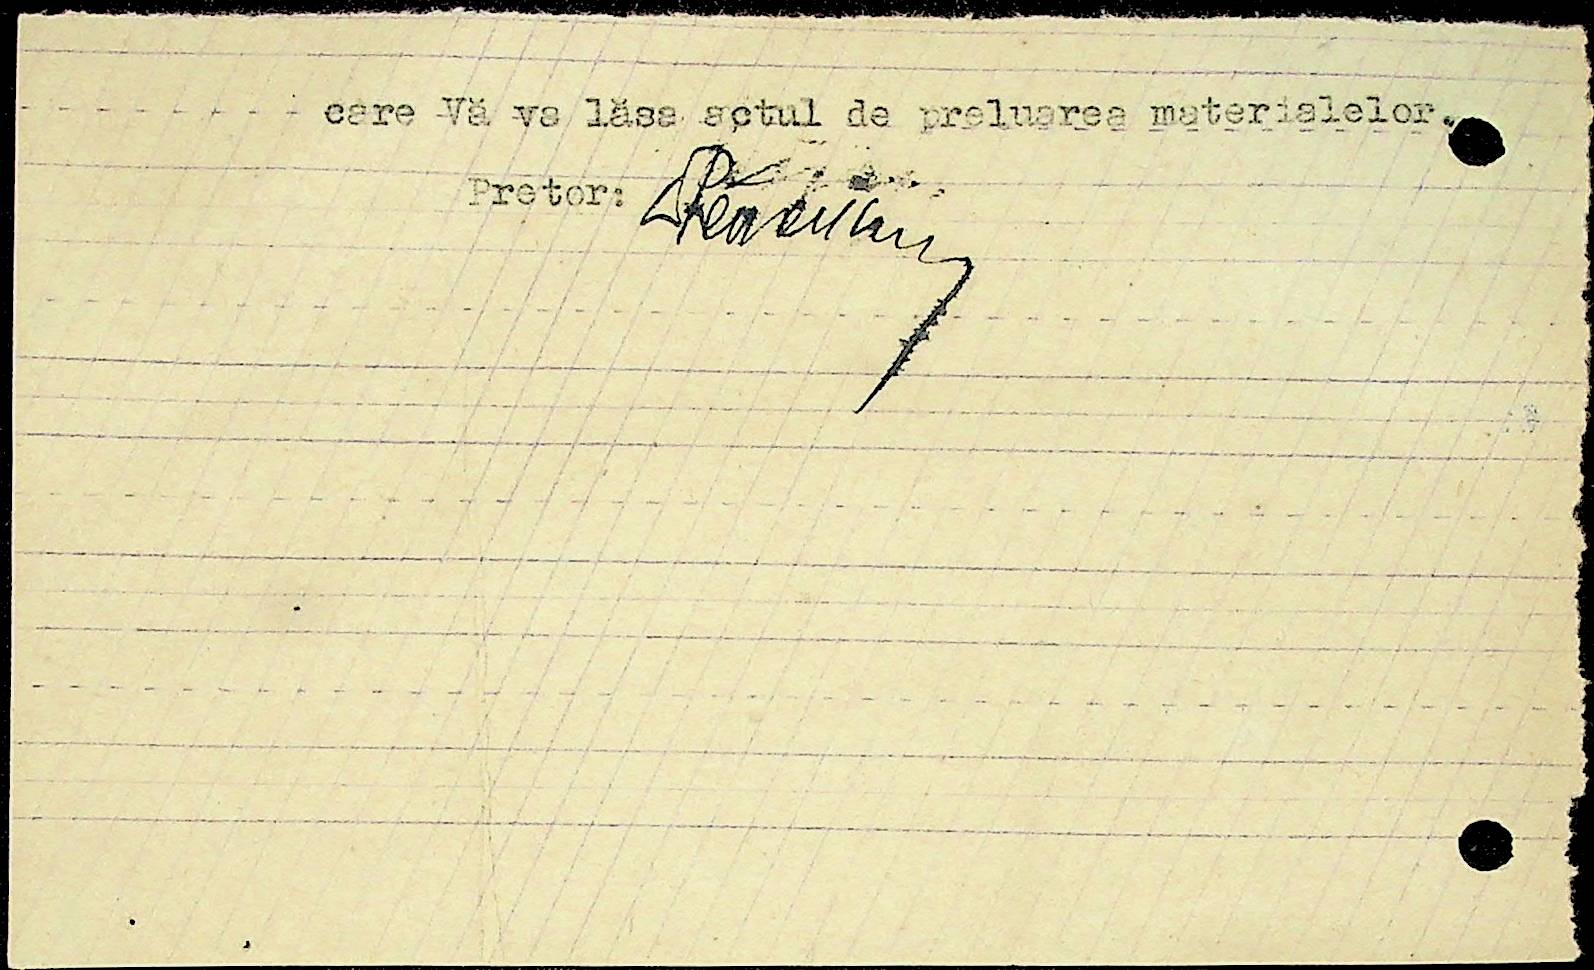 care Vă va lăsa actul de preluarea materialelor.
Pretor: